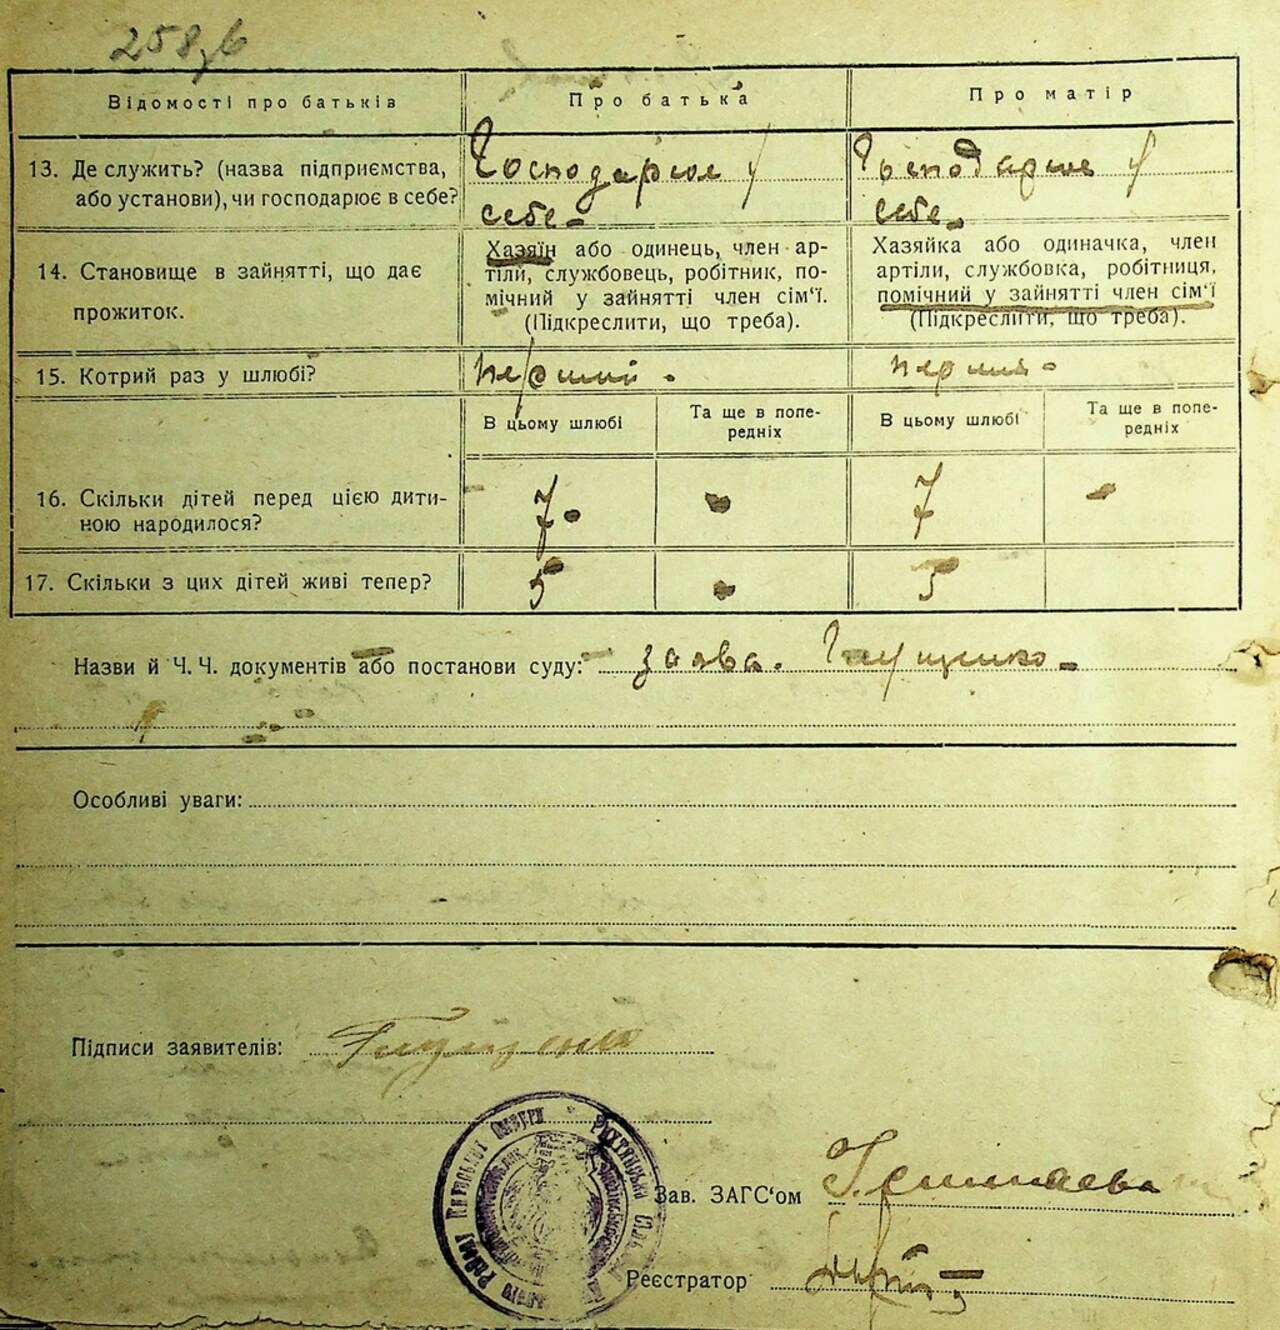 258,б
Відомості про батьків
Про батька
Про матір
13. Де служить? (назва підприємства, або установи), чи господарює в себе?
Господарює у
себе -
Господарює у
себе -
14. Становище в зайнятті, що дає
прожиток.
Хазяїн або одинець, член ар-
тіли, службовець, робітник, по-
мічний у зайнятті член сім'ї.
(Підкреслити, що треба).
Хазяйка або одиначка, член
артіли, службовка, робітниця,
помічний у зайнятті член сім'ї
(Підкреслити, що треба).
15. Котрий раз у шлюбі?
перший -
перший -
В цьому шлюбі
Та ще в попе-
редніх
В цьому шлюбі
Та ще в попе-
редніх
16. Скільки дітей перед цією дити-
ною народилося?
7 -
-
7
-
17. Скільки з цих дітей живі тепер?
5
-
5
Назви й Ч. Ч. документів або постанови суду: заява. Глущенко -
Особливі уваги:
Підписи заявителів: Глущенко
Району Київської Округи
Зав. ЗАГС'ом
Реєстратор